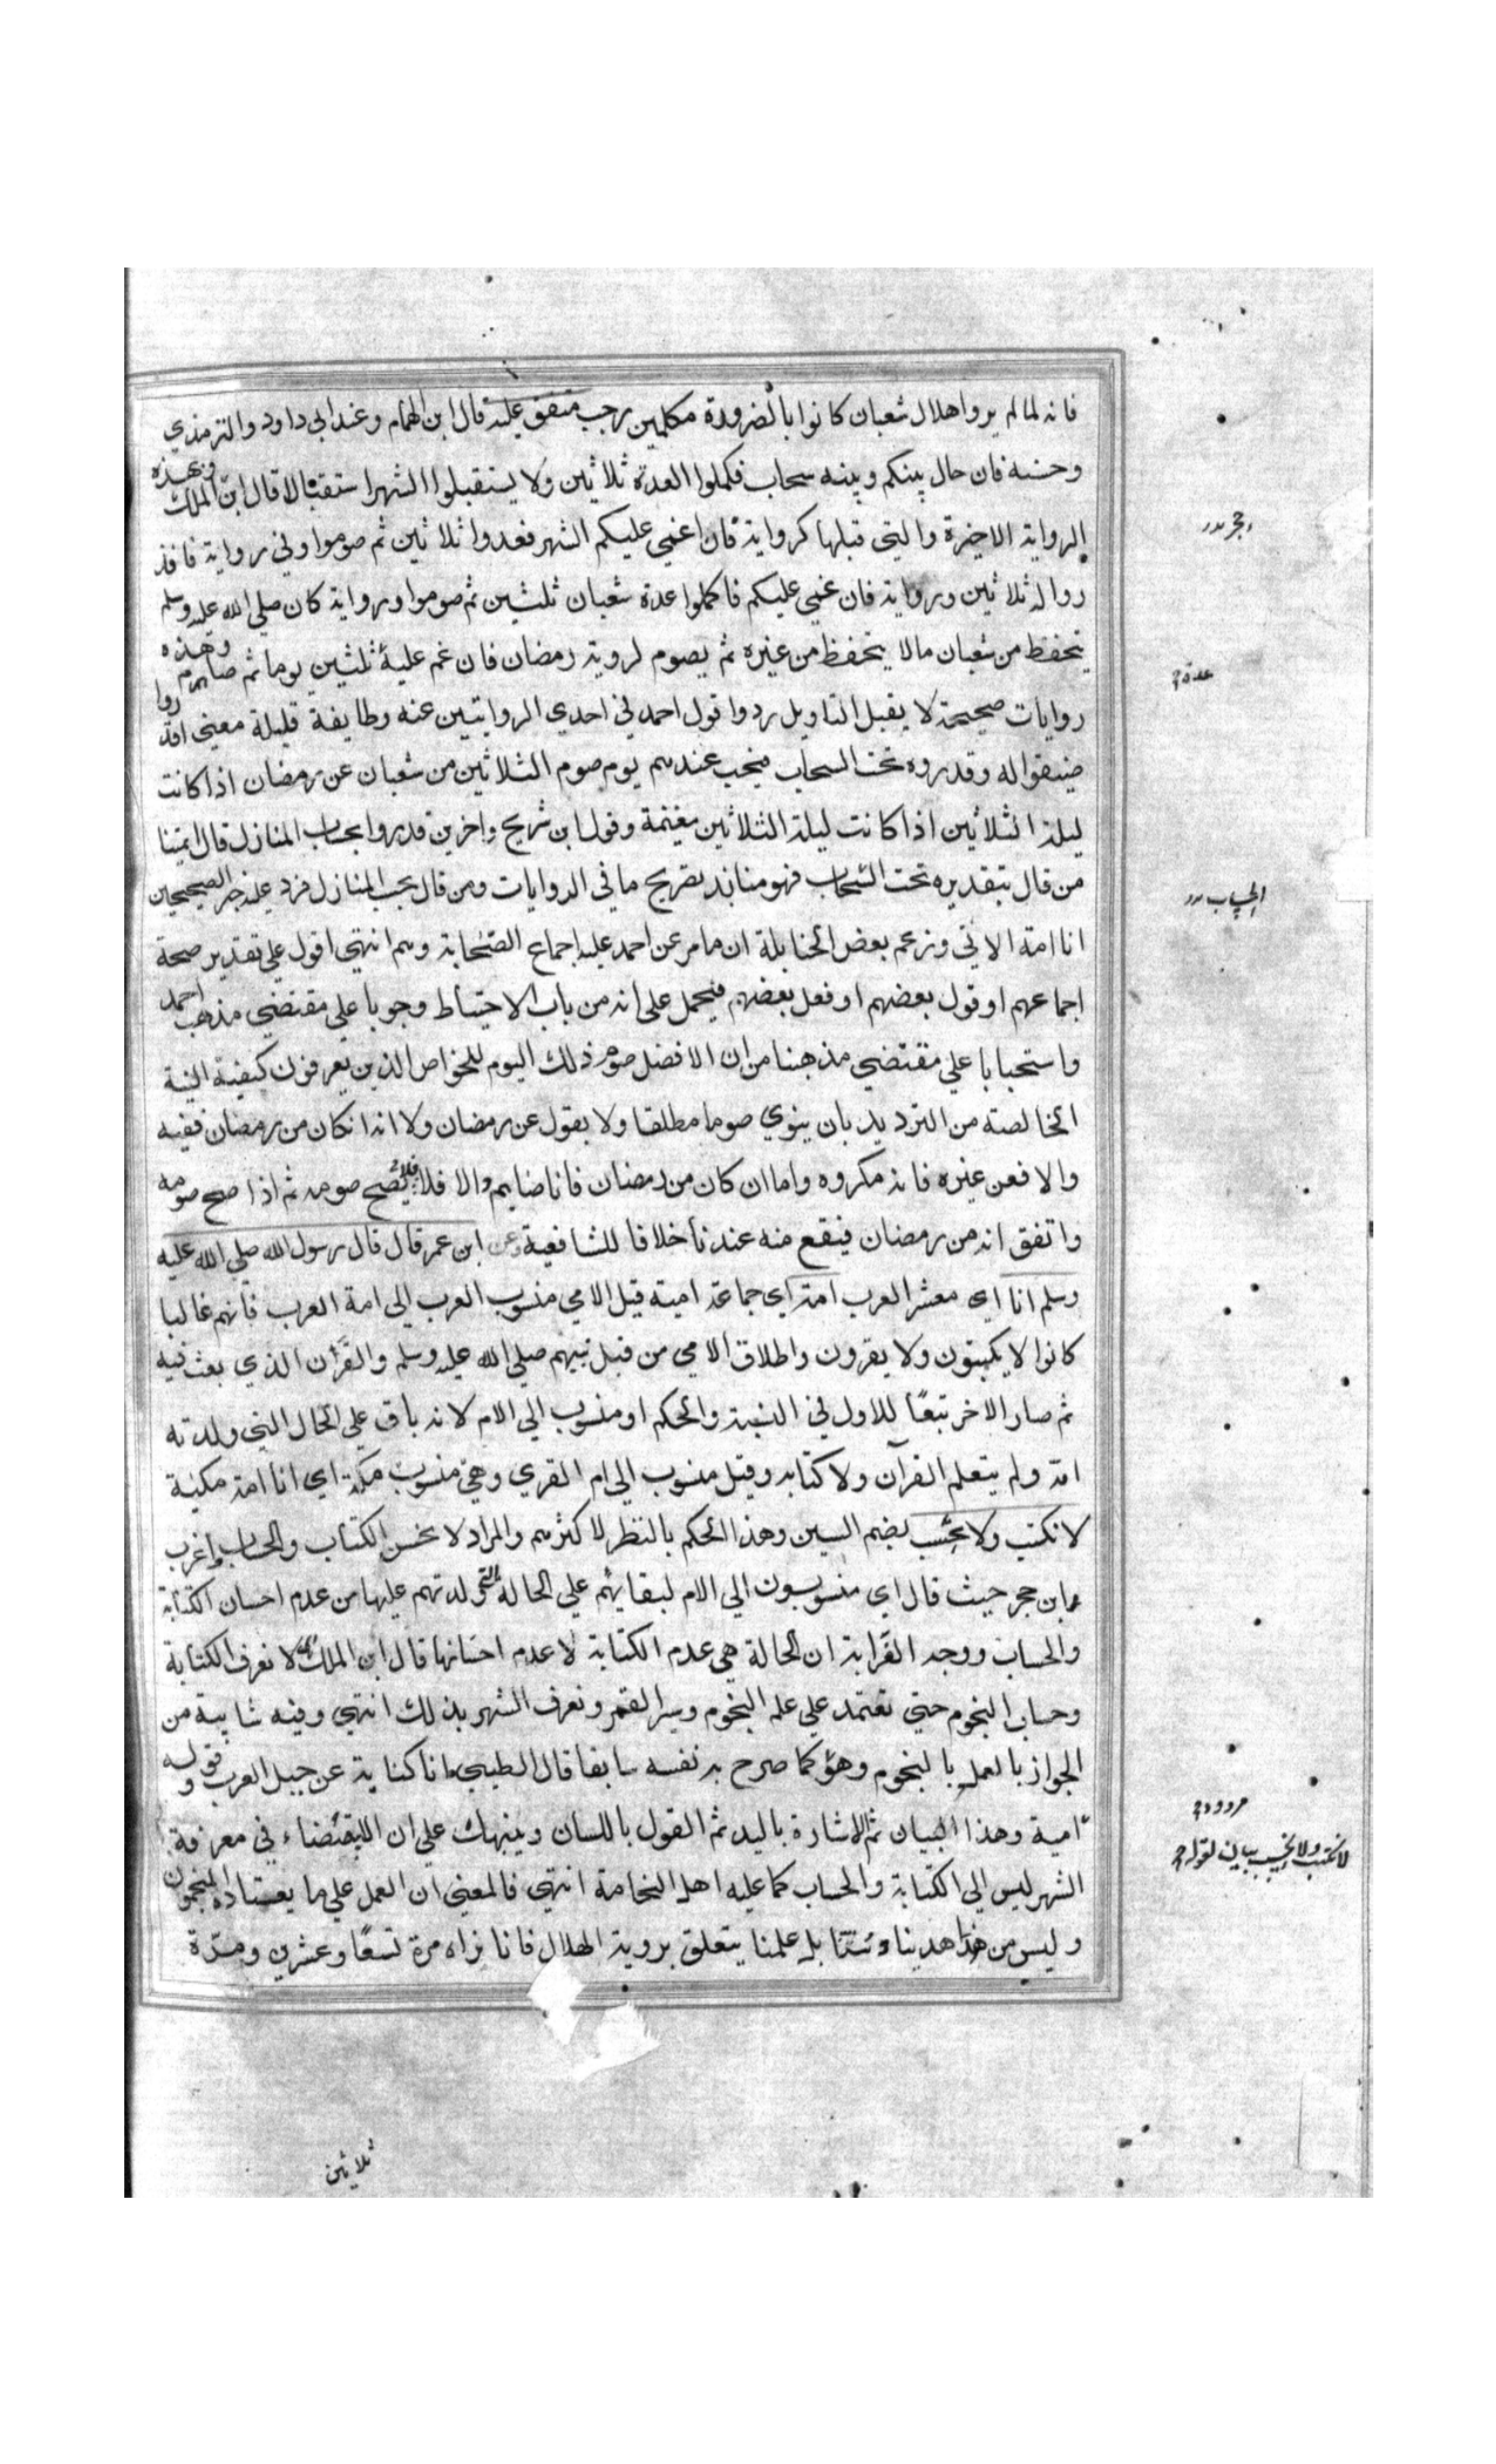 فانه لما لم يروا هلال شعبان كانوا بالضرورة مكملين رجب متفق عليه قال ابن الهمام وعند ابي داود والترمذي
وحسنه فان حال بينكم وبينه سحاب فكملوا العدة ثلاثين ولا يستقبلوا الشهر استقبالا قال ابن الملك وبهذه
الرواية الاخيرة والتي قبلها كرواية فان اغمي عليكم الشهر فعدوا ثلاثين ثم صوموا وفي رواية فاقد
روا له ثلاثين ورواية فان غمي عليكم فاكملوا عدة شعبان ثلثين ثم صوموا ورواية كان صلى الله عليه وسلم
يتحفظ من شعبان مالا يتحفظ من غيره ثم يصوم لروية رمضان فان غم عليه ثلثين يوما ثم صام وهذه
روايات صحيحة لا يقبل التاويل ردوا قول احمد في احدي الروايتين عنه وطايفة قليلة معني اقدروا
ضيقوا له وقدروه تحت السحاب فيجب عندهم يوم صوم الثلاثين من شعبان عن رمضان اذا كانت
ليلة الثلاثين اذا كانت ليلة الثلاثين مغيمة وقول ابن شريح واخرين قدروا بحساب المنازل قال ايمتنا
من قال بتقديره تحت السحاب فهو منابذ بصريح ما في الروايات ومن قال بحسب المنازل فرد عليه خبر الصحيحين
انا امة الاتي وزعم بعض الحنابلة ان ما مر عن احمد عليه اجماع الصحابة وهم انتهي اقول علي تقدير صحة
اجماعهم او قول بعضهم او فعل بعضهم فيحمل على انه من باب الاحتياط وجوبا علي مقتضي مذهب احمد
واستحبابا علي مقتضي مذهبنا من ان الافضل صوم ذلك اليوم للخواص الذين يعرفون كيفية النية
الخالصة من الترديد بان ينوي صوما مطلقا ولا يقول عن رمضان ولا انه ان كان من رمضان ففيه
والا فعن غيره فانه مكروه واما ان كان من رمضان فانا صايم والا فلا فلا يصح صومه ثم اذا صح صومه
واتفق انه من رمضان فيقع منه عندنا خلافا للشافعية وعن ابن عمر قال قال رسول الله صلى الله عليه
وسلم انا اي معشر العرب امة اي جماعة امية قيل الامي منسوب العرب الى امة العرب فانهم غالبا
كانوا لا يكتبون ولا يقرون واطلاق الامي من قبل نبيهم صلى الله عليه وسلم والقران الذي بعث فيه
ثم صار الاخر تبعا للاول في النسبة والحكم او منسوب الي الام لانه باق علي الحال التي ولدته
امه ولم يتعلم القرآن ولا كتابه وقيل منسوب الي ام القري وهي منسوب مكة اي انا امة مكية
لا نكتب ولا نحسب بضم السين وهذا الحكم بالنظر لاكثرهم والمراد لا نحسن الكتاب والحساب واغرب
ابن حجر حيث قال اي منسوبون الي الام لبقايهم علي الحالة التي ولدتهم عليها من عدم احسان الكتابة
والحساب ووجه الغرابة ان الحالة هي عدم الكتابة لا عدم احسانها قال ابن الملك اي لا نعرف الكتابة
وحساب النجوم حتي نعتمد علي علم النجوم وسير القمر ونعرف الشهر بذلك انتهي وفيه شايبة من
الجواز بالعمل بالنجوم وهو كما صرح به نفسه سابقا قال الطيبي انا كناية عن جيل العرب وقوله
امية وهذا البيان ثم الاشارة باليد ثم القول باللسان وينبهك علي ان الاستقصاء في معرفة
الشهر ليس الي الكتابة والحساب كما عليه اهل النجامة انتهي فالمعني ان العمل علي ما يعتاده المنجمون
وليس من هذا هدينا وسنتنا بل علمنا يتعلق بروية الهلال فانا نراه مرة تسعا وعشرين ومرة
حجر
عدة
الحساب
مردود
لا نكتب ولا نحسب بيان لقوله
ثلاثين